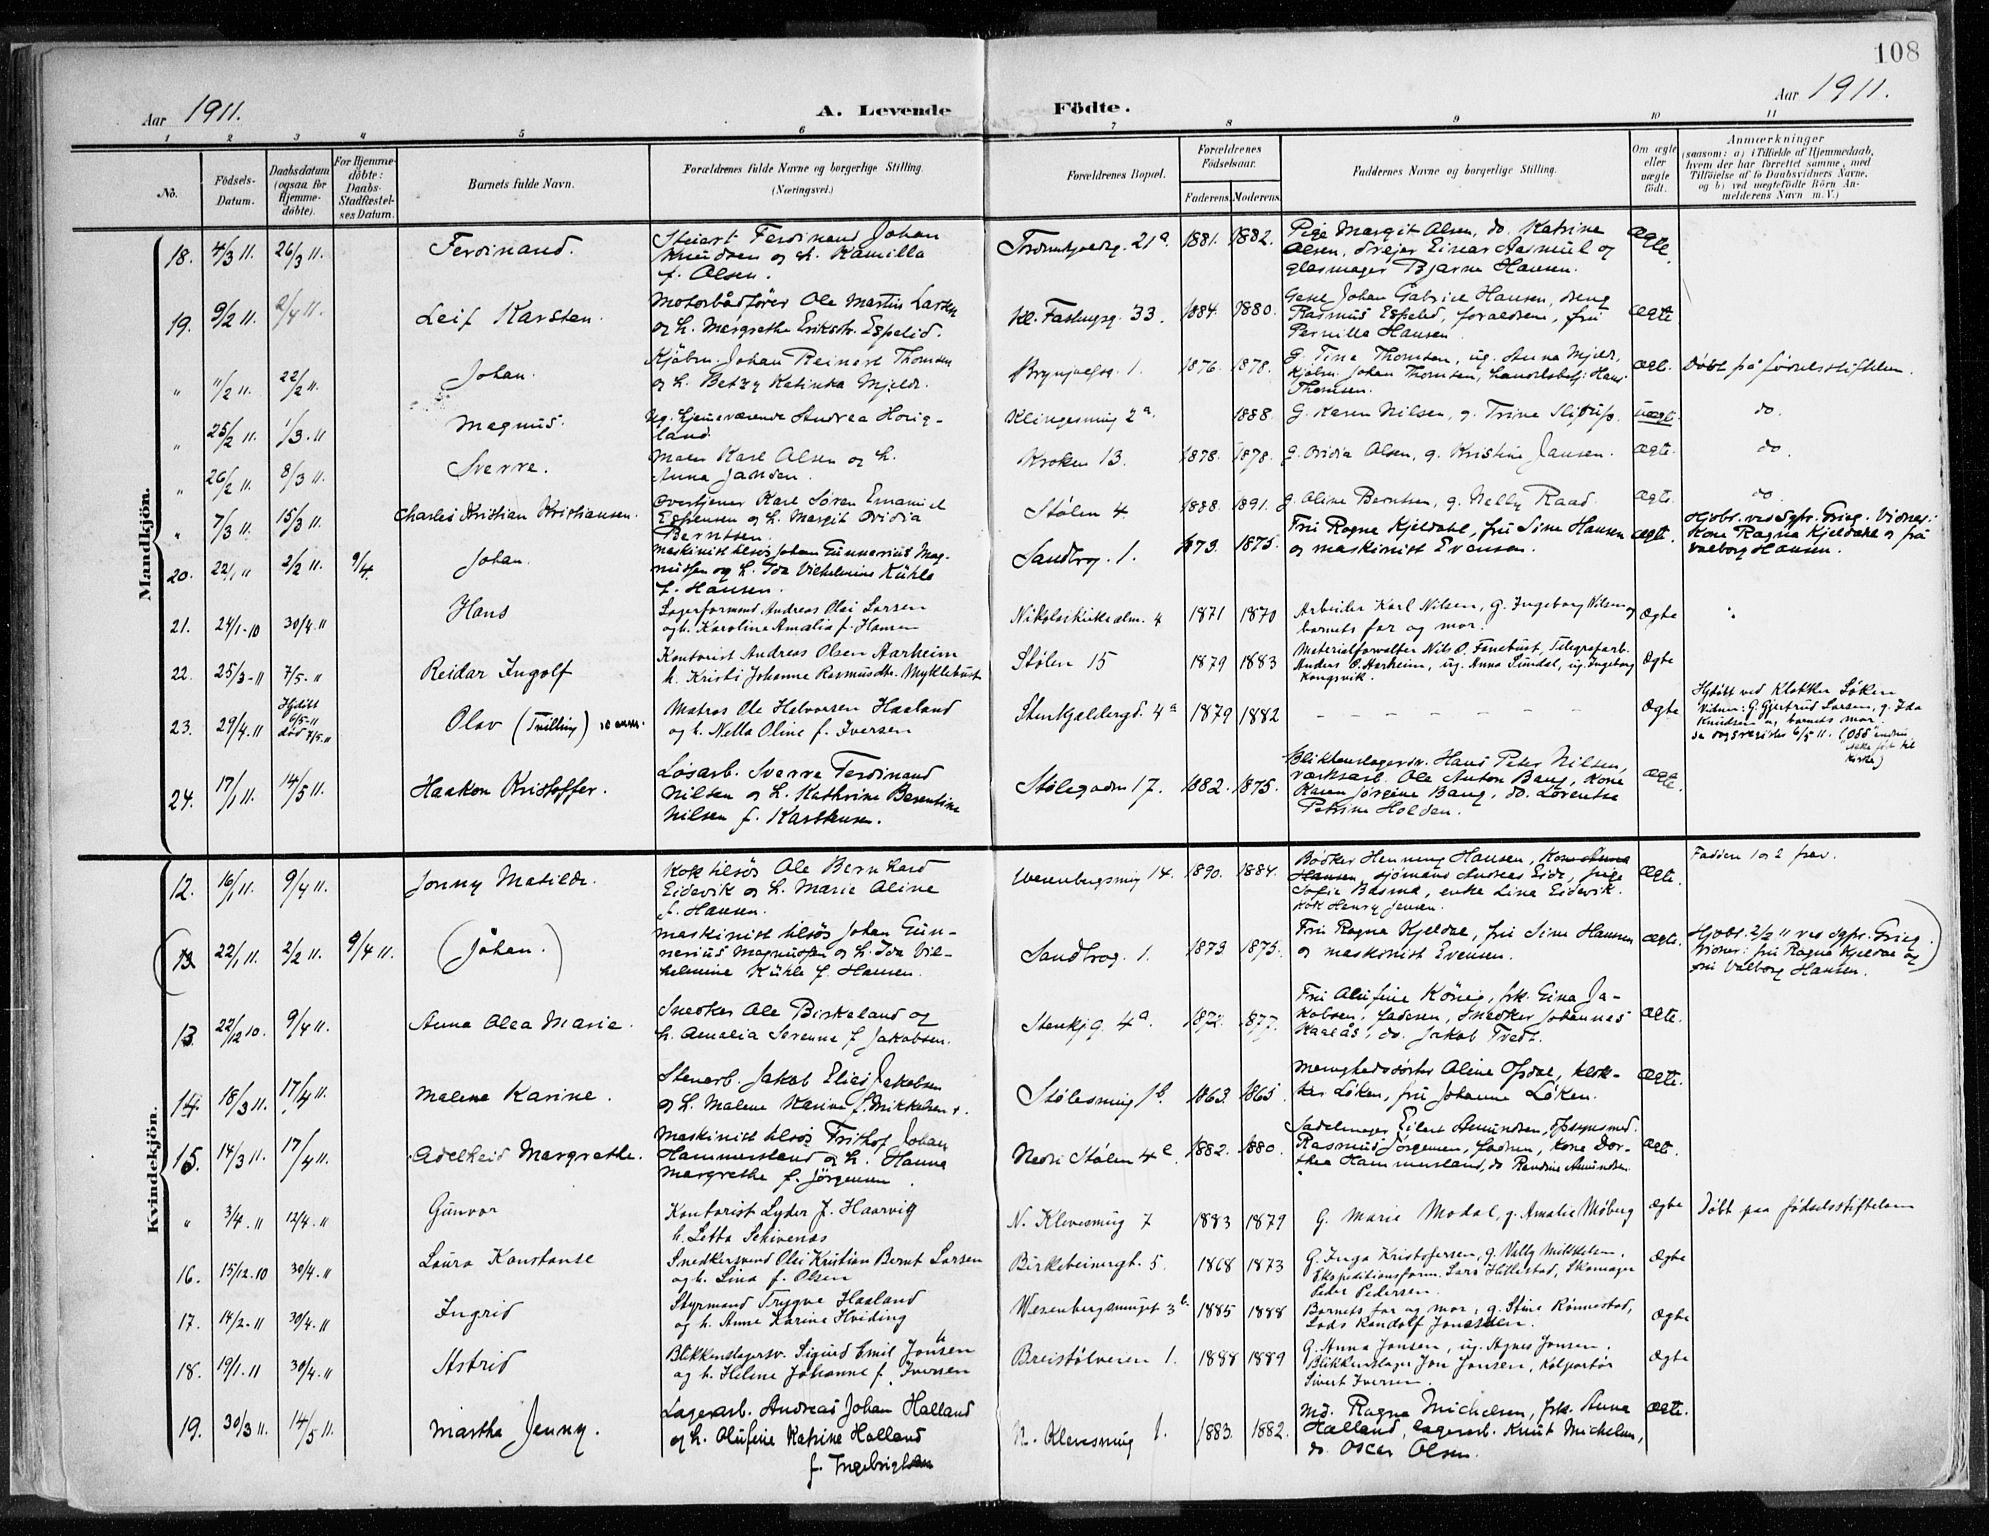 108
Aar 1911.
A. Levende Födte.
Aar 1911.
1 2 3 4 5 6 7 8 9 10 11
No.
Födsels-Datum.
Daabsdatum (ogsaa for Hjemmedöbte).
For Hjemmedöbte: Daabs-Stadfæstelses Datum.
Barnets fulde Navn.
Forældrenes fulde Navne og borgerlige Stilling.
(Næringsvei.)
Forældrenes Bopæl.
Forældrenes Födselsaar.
Faderens. Moderens.
Faddernes Navne og borgerlige Stilling.
Om ægte eller uægte födt.
Anmærkninger
(saasom: a) i Tilfælde af Hjemmedaab, hvem der har forrettet samme, med Tilföielse af to Daabsvidners Navne, og b) ved uegtefödte Börn Anmelderens Navn m. V.)
Mandkjön.
18. 4/3 11. 26/3 11. Ferdinand. Stuert Ferdinand Johan Knudsen og h. Kamilla f. Olsen. 21a 1881. 1882. Pige Margit Olsen, do. Katrine Olsen, drejer Einar Rasmus og glasmager Bjarne Hansen. Ægte.
19. 9/2 11. 2/4 11. Leif Karsten. Motorbådfører Ole Martin Larsen og h. Margrethe Eriksdtr. Espelid. 33. 1884. 1880. Johan Gabriel Hansen, Rasmus Espelid, forældrene, fru Pernille Hansen. ægte
" 11/2 11. 22/2 11. Johan. Kjøbm. Johan Reinert Thomsen og h. Betzy Katinka Mjeld. Brynjulfsg. 1. 1876. 1878. G. Tina Thomsen, ug. Anna Mjeld, Kjøbm. Johan Thomsen, handelsbetj. Hans Thomsen. ægte. Døbt på fødselsstiftelsen.
" 25/2 11. 1/3 11. Magnus. Ug. hjemeværende Andrea Horigland. Klingesmug 2a. 1888. G. Karen Nilsen, g. Trine uægte. do.
" 26/2 11. 8/3 11. Sverre. Maler Karl Olsen og h. Anna Jansen. Kroken 13. 1878. 1878. g. Ovidia Olsen, g. Kristine Jansen. ægte. do.
" 7/3 11. 15/3 11. Charles Kristian Kristiansen. Overtjener Karl Søren Emanuel Espensen og h. Margit Ovidia Berntsen. Stølen 4 1888. 1891. g. Oline Berntsen, g. Nelly Raad. ægte. do
20. 22/1 11 2/2 11. 9/4. Johan. Maskinist tilsøs Johan Gunnerius Magnussen og h. Ida Vilhelmine Kühle f. Hansen. Sandbrog. 1. 1873. 1875. Fru Ragna Kjeldahl, fru Sine Hansen og maskinist Evensen. ægte. Hjdbt. ved Sgpr. Grieg. Vidner: Kone Ragna Kjeldahl og fru Valborg Hansen.
21. 24/1-10 30/4-11 Hans Lagerformand Andreas Olai Larsen og h. Karoline Amalia f. Hansen Nikolaikirkealm. 4 1871 1870 Arbeider Karl Nilsen, g. Ingeborg Nilsen og barnets far og mor. Ægte
22. 25/3-11 7/5-11 Reidar Ingolf Kontorist Andreas Olsen Aarheim h. Kristi Johanne Rasmusdtr. Myklebust Stølen 15 1879 1883 Materialforvalter Nils O. Fanebust, Telegrafarb. Anders O. Aarheim, ug. Anna Sundal, ug. Ingeborg Kongsvik. Ægte
23. 29/4-11 Hjdöbt 6/5-11 död 7/5-11 Olav (Tvilling) Matros Ole Halvorsen Haaland og h. Nella Oline f. Iversen Stenkjeldergd. 4a 1879 1882 – – – – – – – Ægte Hjdöbt ved Klokker Løken Vidner: G. Gjertrud Larsen, g. Ida Knudsen og barnets mor.
24. 17/1 11. 14/5 11. Haakon Kristoffer. Løsarb. Sverre Ferdinand Nilsen og h. Kathrine Berentine Nilsen f. Karstensen. Stølegaden 17. 1882. 1875. Blikkenslagersv. Hans Peter Nilsen, værksarb. Ole Anton Bang, Kone Karen Jørgine Bang, do. Lorentse Petrine Holden. Ægte.
Kvindekjön.
12. 16/1 11. 9/4 11. Jonny Matilde. Kok tilsøs Ole Bernhard Eidevik og h. Marie Oline f. Hansen. Wesenbergsmug 14. 1890. 1884. Bødker Henning Hansen, Kone Anna Hansen, sjømand Andreas Eide, pige Sofie Basma, enke Lina Eidevik. Kok Henry Jensen. Ægte. Fadder 1 og 2 frav.
(13 22/1 11. 2/2 11. 9/4 11. (Johan.) Maskinist tilsøs Johan Gunnerius Magnussen og h. Ida Vilhelmine Kühle f. Hansen. Sandbrog. 1. 1873 1875. Fru Ragna Kjeldal, fru Sine Hansen og maskinist Evensen. ægte. Hjdbt. 2/2 11 ved sgpr. Grieg. Vidner: fru Ragna Kjeldal og fru Valborg Hansen.)
13. 22/12 10. 9/4 11. Anna Olea Marie. Snedker Ole Birkeland og h. Amalia Serenne f. Jakobsen. Stenkjg. 4a. 1872. 1877. Fru Olufine König, frk. Gina Jakobsen, faderen, snedker Johannes Kaalås, do. Jakob Tvedt. ægte.
14. 18/3 11. 17/4 11. Malene Karine. Stenarb. Jakob Elias Jakobsen og h. Malene Karine f. Mikkelsen. Stølesmug 1b. 1863. 1865. Menighedssøster Oline Opdal, klokker Løken, fru Johanne Løken. Ægte.
15. 14/3 11. 17/4 11. Adelheid Margrethe. Maskinist tilsøs Frithof Johan Hammersland og h. Hanna Margrethe f. Jørgensen. Nedre Stølen 4c. 1882. 1880. Sadelmager Eilert Amundsen, opsynsmd. Rasmus Jørgensen, faderen, kone Dorthea Hammersland, do Randine Amundsen. ægte.
" 3/4. 11 12/4. 11 Gunvor Kontorist Lyder J. Haarvig h. Letta Schivenes N. Klevesmug 7 1883 1879 G. Marie Modal, g. Amalie Møberg Ægte Døbt paa fødselsstiftelsen
16. 15/12.10 30/4.11 Laura Konstanse Snedkersvend Olai Kristian Bernt Larsen og h. Lina f. Olsen Birkebeinergt. 5. 1868 1873 G. Inga Kristofersen, g. Vally Mikkelsen. Ekspeditionsform. Lars Hillestad, Skomager Peder Pedersen. Ægte
17. 14/2-11 30/4-11 Ingrid Styrmand Trygve Haaland og h. Anne Karine Hviding Wesenbergsmuget 3b. 1885 1888 Barnets far og mor, g. Stine Rönnestad, Lods Randolf Jonassen. Ægte
18. 19/1.11 30/4.11 Astrid Blikkenslagersv. Sigurd Emil Jonsen og h. Helene Johanne f. Iversen Breistølveien 1. 1888 1889 G. Anna Jonsen, ug. Agnes Jonsen. Blikkenslager Jon Jonsen, Kolportör Sivert Iversen. Ægte
19. 30/3 11. 14/5 11. Martha Jenny. Lagerarb. Andreas Johan Halland og h. Olufine Katrine Halland f. Ingebrigtsen N. Klevesmug 1. 1883. 1882. Md. Ragna Michelsen, frk. Anna Halland, lagerarb. Knut Michelsen, do. Oscar Olsen. ægte.